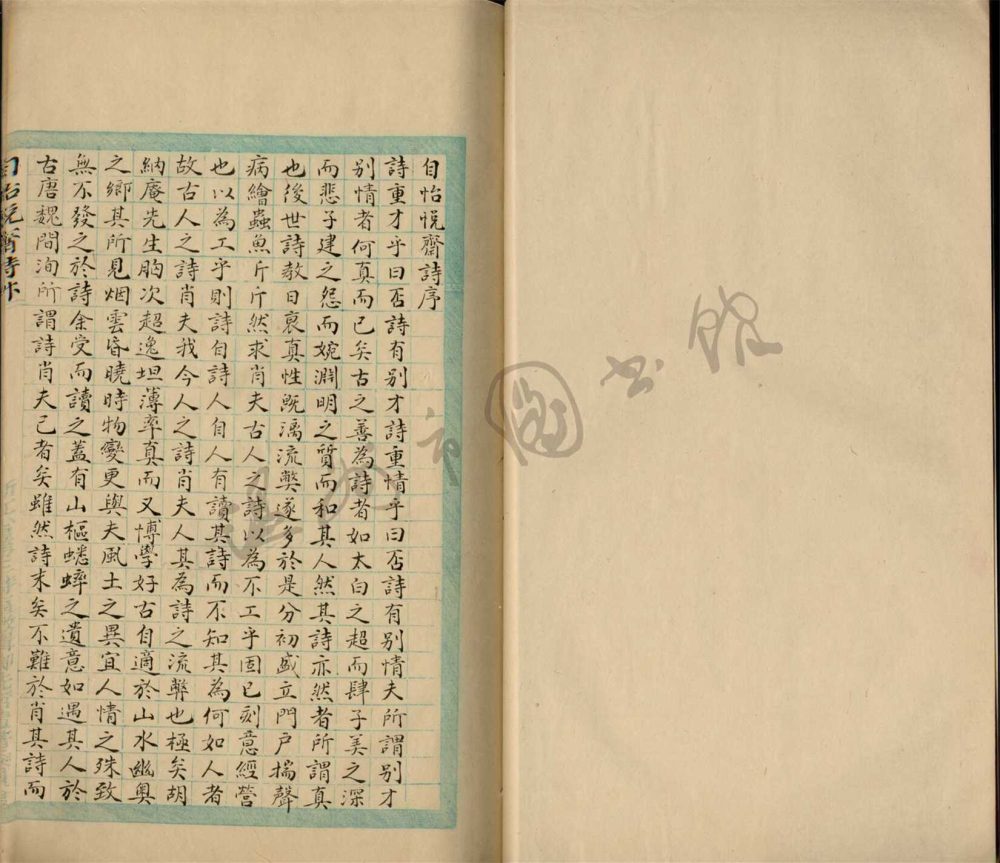 自怡悦齋詩序
詩重才乎曰否詩有别才詩重情乎曰否詩有别情夫所謂别才
别情者何真而已矣古之善為詩者如太白之超而肆子美之深
而悲子建之怨而婉淵明之質而和其人然其詩亦然者所謂真
也後世詩教日衰真性既漓流弊遂多於是分初盛立門户揣聲
病繪蟲魚斤斤然求肖夫古人之詩以為不工乎固已刻意經營
也以為工乎則詩自詩人自人有讀其詩而不知其為何如人者
故古人之詩肖夫我今人之詩肖夫人其為詩之流弊也極矣胡
納庵先生胸次超逸坦薄率真而又博學好古自適於山水幽奥
之鄉其所見烟雲昏曉時物變更與夫風土之異宜人情之殊致
無不發之於詩余受而讀之蓋有山樞蟋蟀之遺意如遇其人於
古唐魏間洵所謂詩肖夫已者矣雖然詩末矣不難於肖其詩而
自怡悦齋詩
圖書館